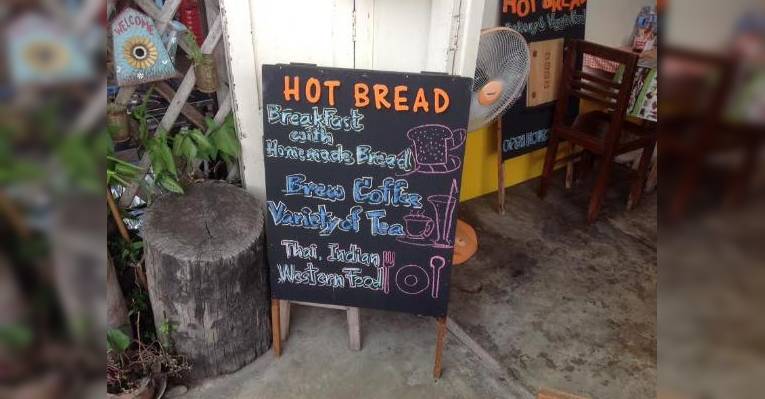 WELCOME
HOT BREAD
Breakfast
with
Homemade Bread
Brew Coffee
Variety of Tea
Thai, Indian
Western Food
HOT BREAD